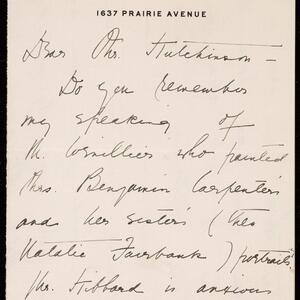 1637 PRAIRIE AVENUE
Dear Mr. Hutchinson –
Do you remember
my speaking of
M. Cornillier who painted
Mrs. Benjamin Carpenter's
and her sister's (Miss
Natalie Fairbank) portraits
Mr. Hibbard is anxious